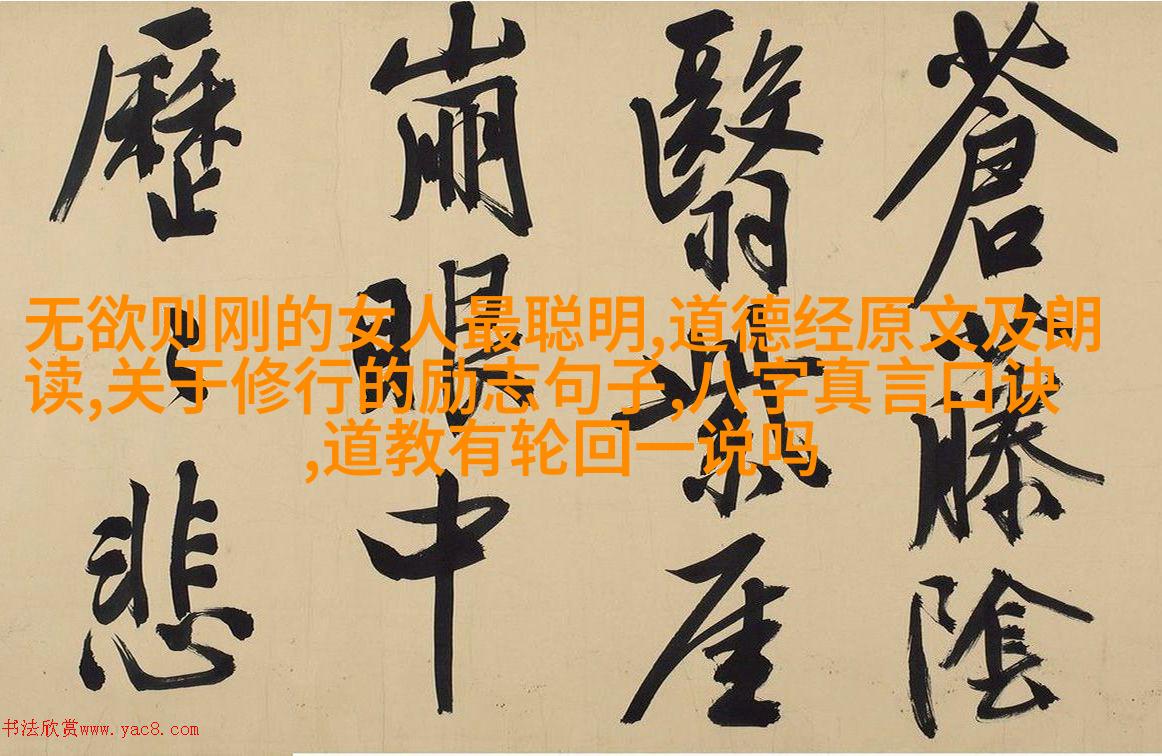 蒼藤陰
翳紫厓
崩眼中
歷々悲
无欲则刚的女人最聪明,道德经原文及朗
读,关于修行的励志句子,八字真言口诀
,道教有轮回一说吗
书法欣赏www.yac8.com